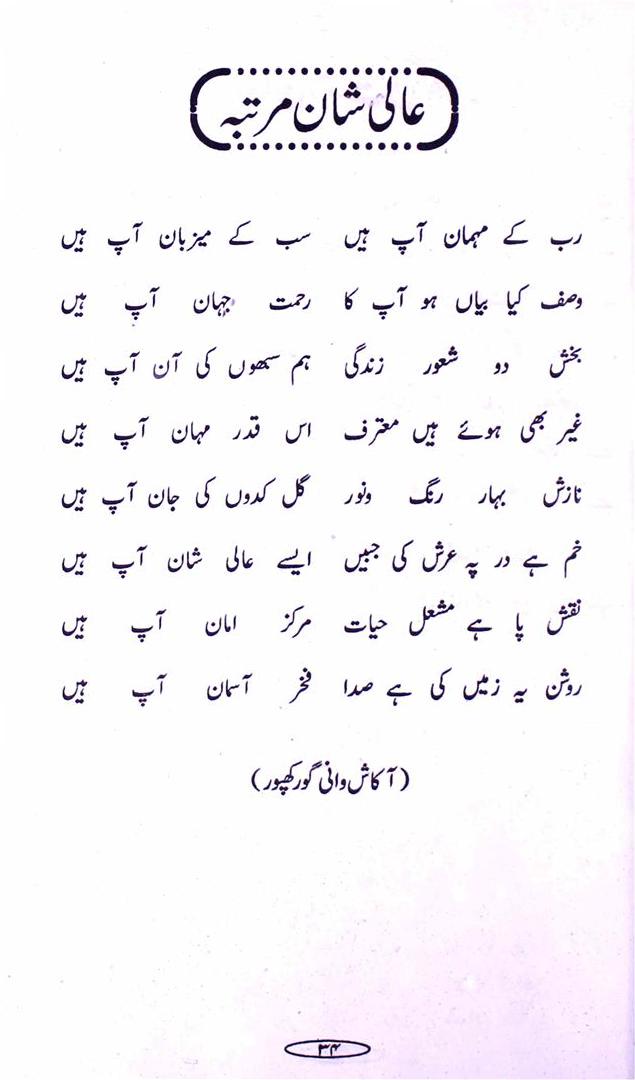 عالی شان مرتبہ
رب کے مہمان آپ ہیں سب کے میزبان آپ ہیں
وصف کیا بیاں ہو آپ کا رحمت جہان آپ ہیں
بخش دو شعور زندگی ہم سبھوں کی آن آپ ہیں
غیر بھی ہوئے ہیں معترف اس قدر مہان آپ ہیں
نازش بہار رنگ ونور گل کدوں کی جان آپ ہیں
خم ہے در پہ عرش کی جبیں ایسے عالی شان آپ ہیں
نقش پا ہے مشعل حیات مرکز امان آپ ہیں
روشن یہ زمیں کی ہے صدا فخر آسمان آپ ہیں
(آکاش وانی گورکھپور)
۳۴